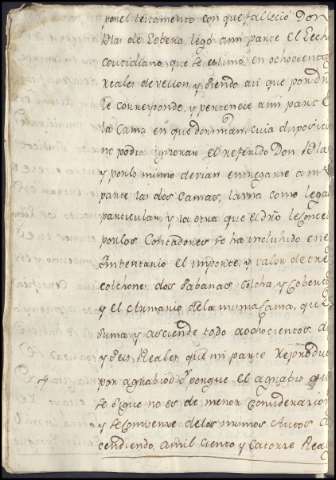 por el testamento con que fallecio Don
Blas de Lobera, lego a mi parte el Lecho
Coutidiano, que se estimo, en ochocientos
reales de vellon, y siendo asi que por dro
le corresponde, y pertenece a mi parte
la Cama en que dormian, cuia disposicion
no podia ignorar el referido Don Blas
y por lo mismo devian entregarse a mi
parte las dos Camas, la una como legado
particular y la otra que el dro le concede
por los Contadores se ha incluido en el
Imbentario el importe, y valor de tres
colchones, dos sabanas, Colcha y Cobertor
y el armario de la misma Cama, que
suma y asciende todo a ochocientos
y seis Reales, que mi parte reproduce
por agrabio 4º porque el agrabio que
se sigue no es de menor consideracion
y se combence de los mismos Autos
cendiendo a mil ciento y catorze Reales